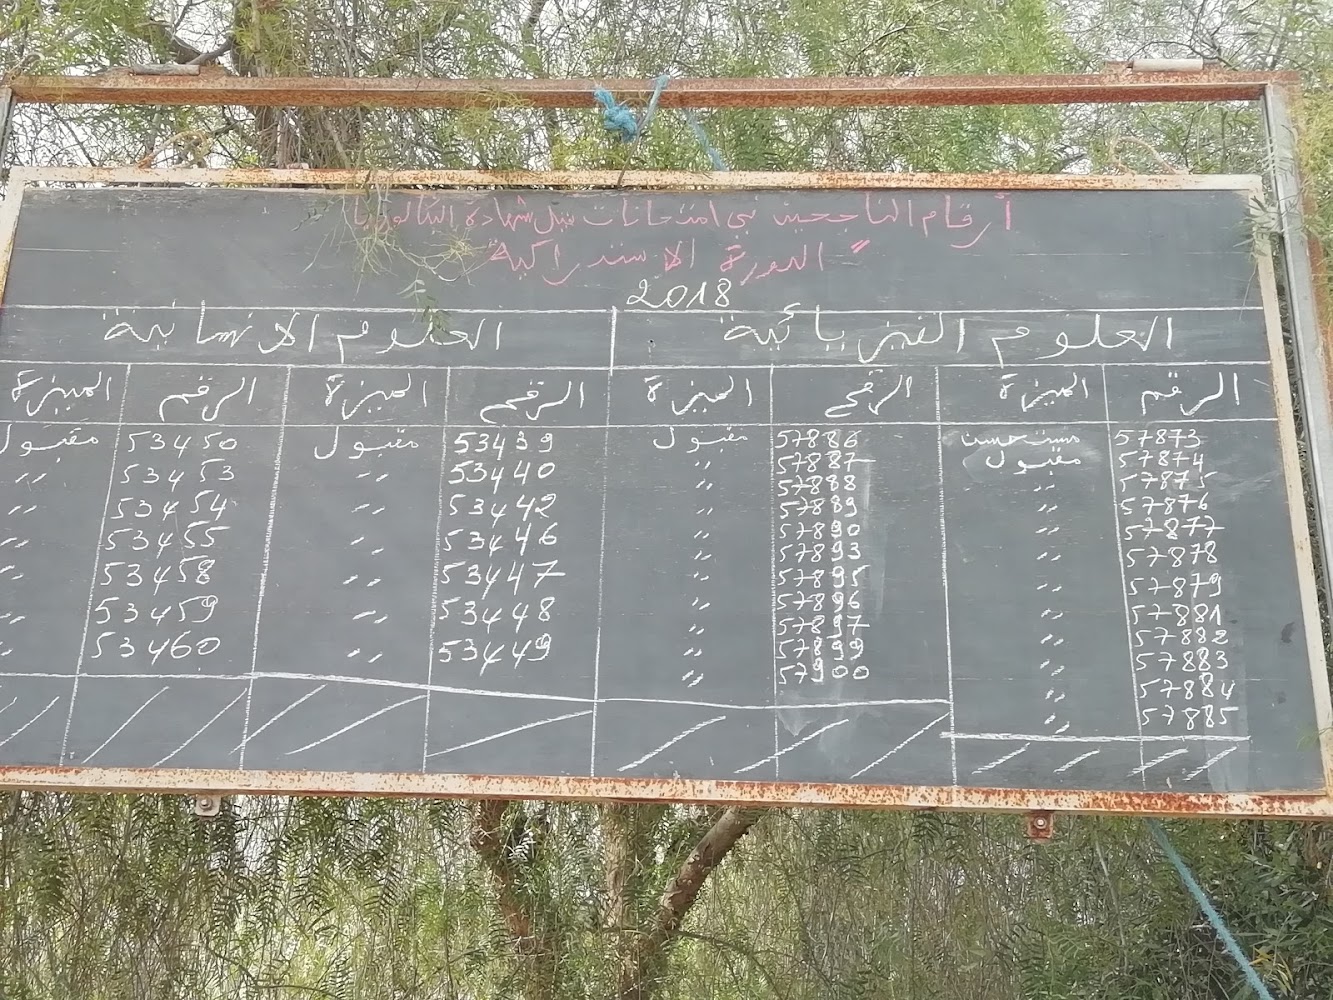 أرقام الناجحين في امتحانات نيل شهادة البكالوريا
" الدورة الاستدراكية
2018
العلوم الفيزيائية العلوم الانسانية
الرقم الميزة الرقم الميزة الرقم الميزة الرقم الميزة
57873 مستحسن 57886 مقبول 53439 مقبول 53450 مقبول
57874 مقبول 57887 〃 53440 〃 53453 〃
57875 〃 57888 〃 53442 〃 53454 〃
57876 〃 57889 〃 53446 〃 53455 〃
57877 〃 57890 〃 53447 〃 53458 〃
57878 〃 57893 〃 53448 〃 53459 〃
57879 〃 57895 〃 53449 〃 53460 〃
57881 〃 57896 〃
57882 〃 57897 〃
57883 〃 57899 〃
57884 〃 57900 〃
57885 〃